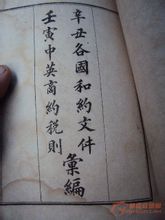 辛丑各國和約文件
壬寅中英商約稅則
彙編